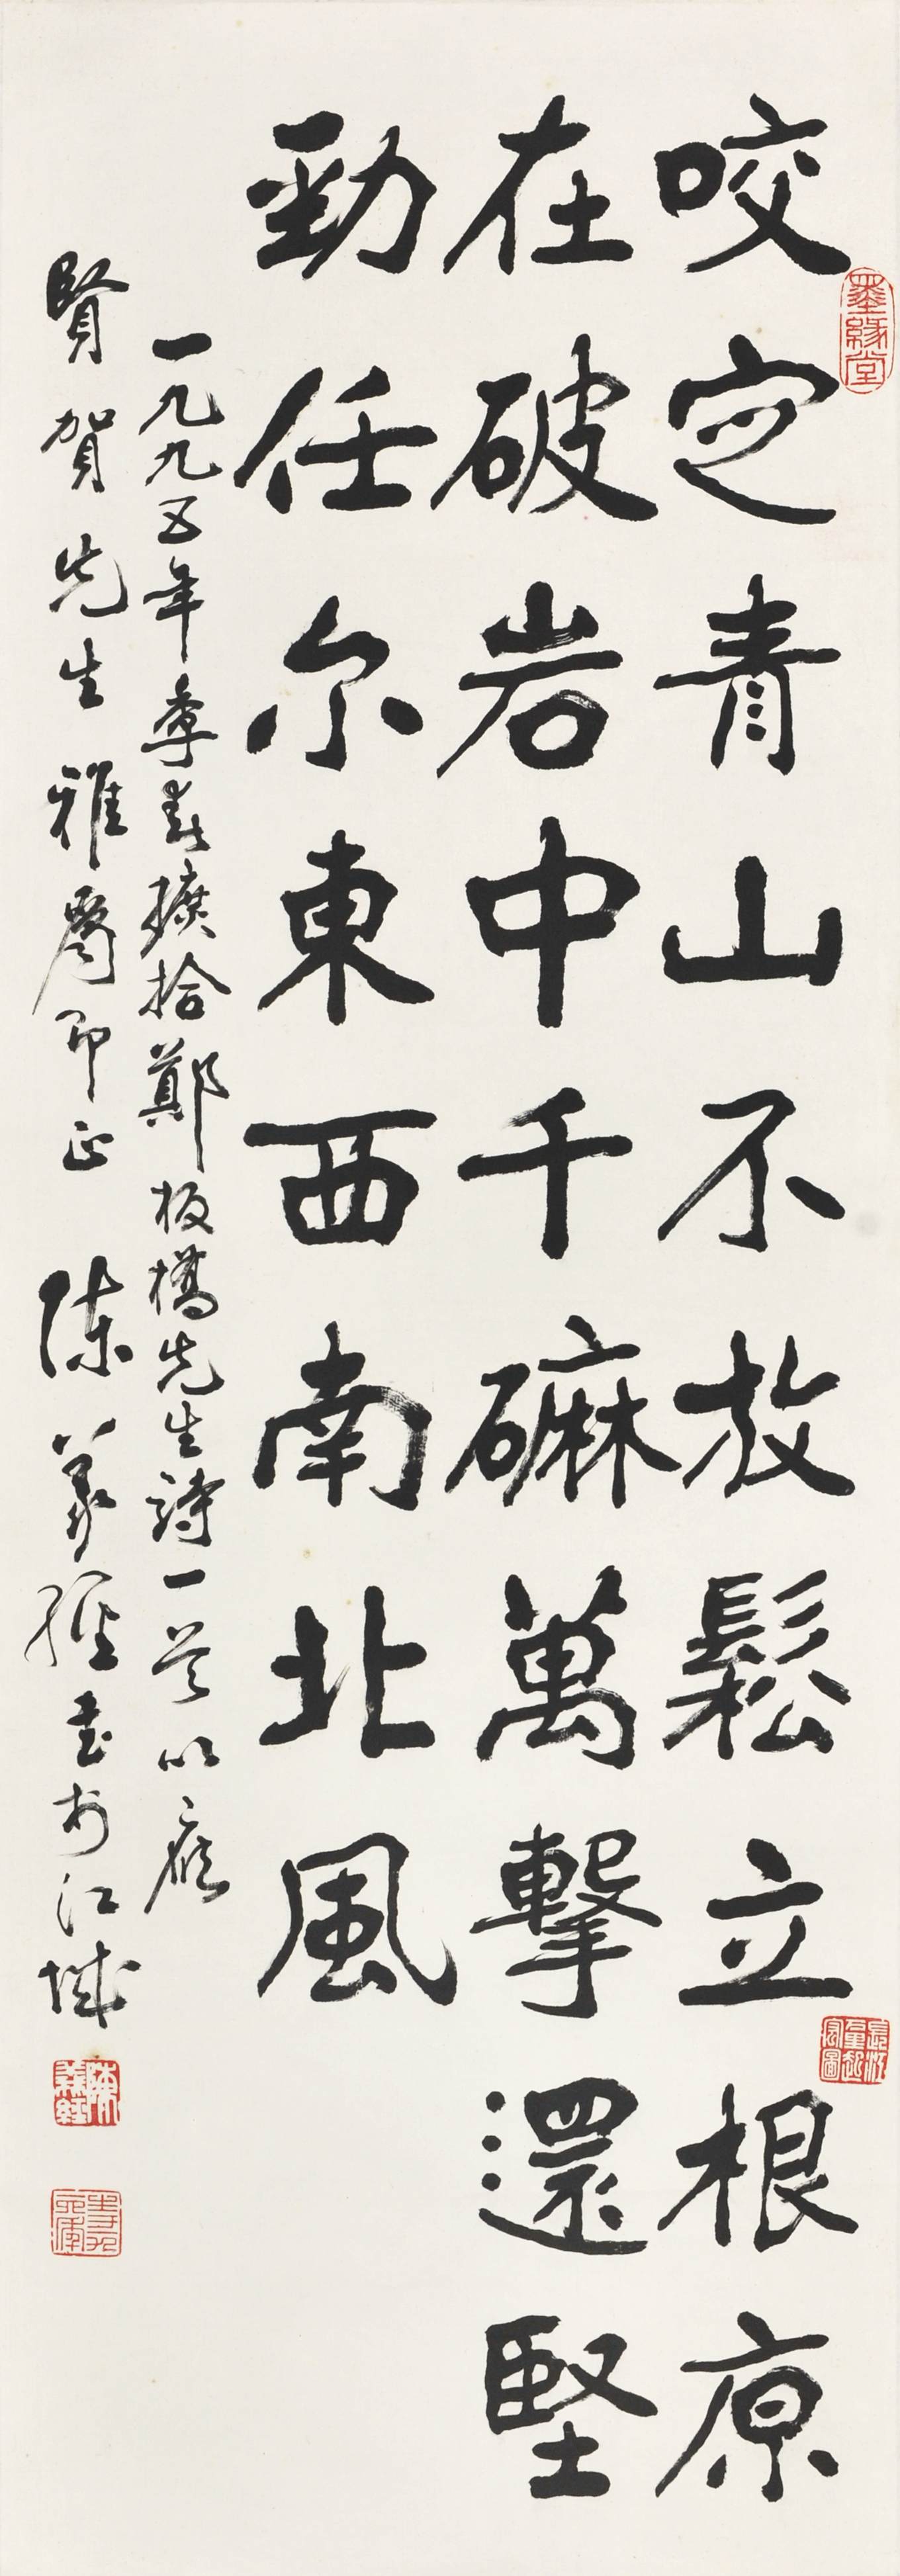 咬定青山不放鬆立根原
在破岩中千磨萬擊還堅
勁任尔東西南北風
一九九五年季春摭拾鄭板橋先生詩一首以應
賢賀先生雅屬即正 陳義經書於江城
墨緣堂
陳義經